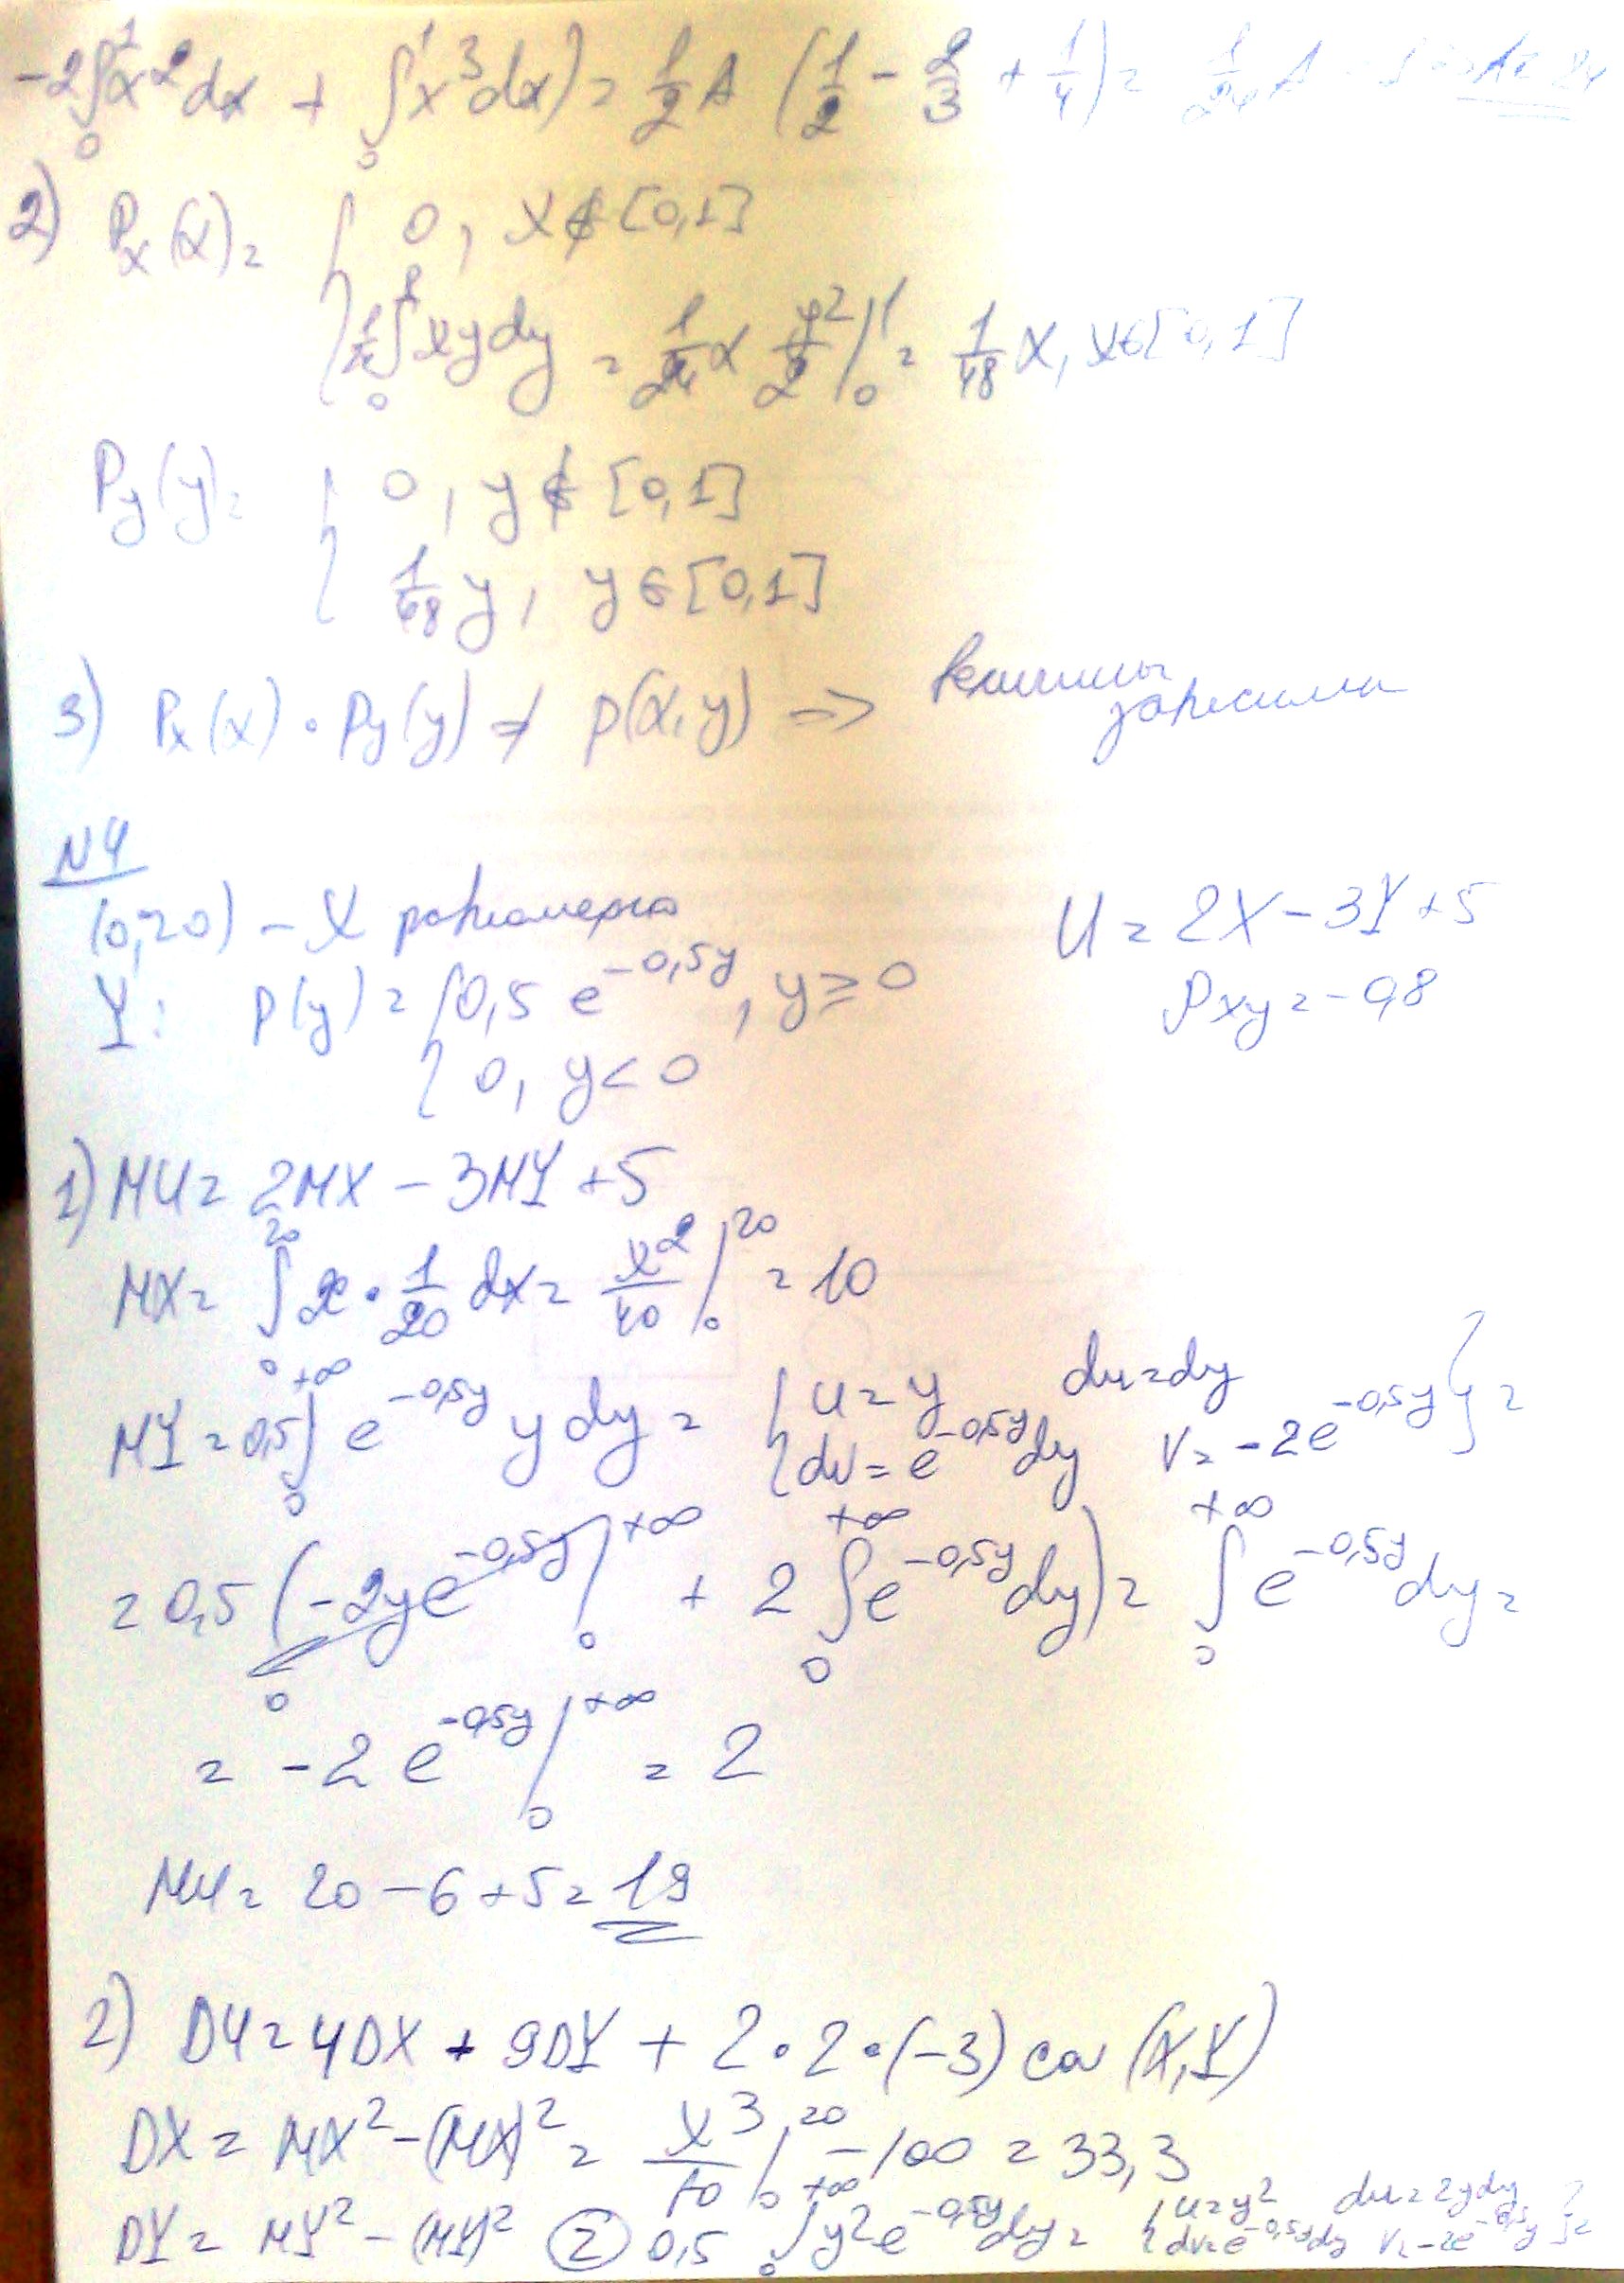 -2∫₀¹x²dx + ∫₀¹x³dx) = 1/2 A (1/2 - 2/3 + 1/4) = 1/24 A
2) Pₓ(x) = { 0, x∉[0,1]
1/24 ∫₀¹ xy dy = 1/24 x y²/2 |₀¹ = 1/48 x, x∈[0,1]
Py(y) = { 0, y∉[0,1]
1/48 y, y∈[0,1]
3) Px(x) · Py(y) ≠ p(x,y) => величины
зависимы
N4
(0;20) - X равномерно
U = 2X - 3Y + 5
Y: p(y) = { 0,5 e^(-0,5y), y ≥ 0
ρxy = -0,8
0, y < 0
1) MU = 2MX - 3MY + 5
MX = ∫₀²⁰ x · 1/20 dx = x²/40 |₀²⁰ = 10
MY = 0,5 ∫₀^(+∞) e^(-0,5y) y dy = { u = y du = dy
dv = e^(-0,5y) dy v = -2e^(-0,5y) } =
= 0,5 (-2ye^(-0,5y) |₀^(+∞) + 2 ∫₀^(+∞) e^(-0,5y) dy) = ∫₀^(+∞) e^(-0,5y) dy =
0
= -2 e^(-0,5y) |₀^(+∞) = 2
MU = 20 - 6 + 5 = 19
2) DU = 4DX + 9DY + 2·2·(-3) cov (X,Y)
DX = MX² - (MX)² = x³/60 |₀²⁰ - 100 = 33,3
DY = MY² - (MY)² = 0,5 ∫₀^(+∞) y² e^(-0,5y) dy = { u = y² du = 2y dy
dv = e^(-0,5y) dy v = -2e^(-0,5y) } =